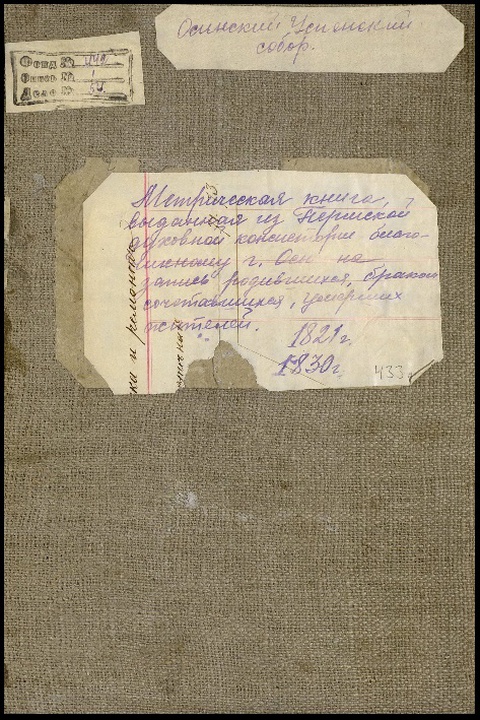 Осинский Успенский
собор.
Фонд №
Опись № 1
Дело №
Метрическая книга,
выданная из Пермской
духовной консистории благо-
чинному г. Осы на
запись родившихся, браком
сочетавшихся, умерших
жителей.
1821г.
1830г.
433